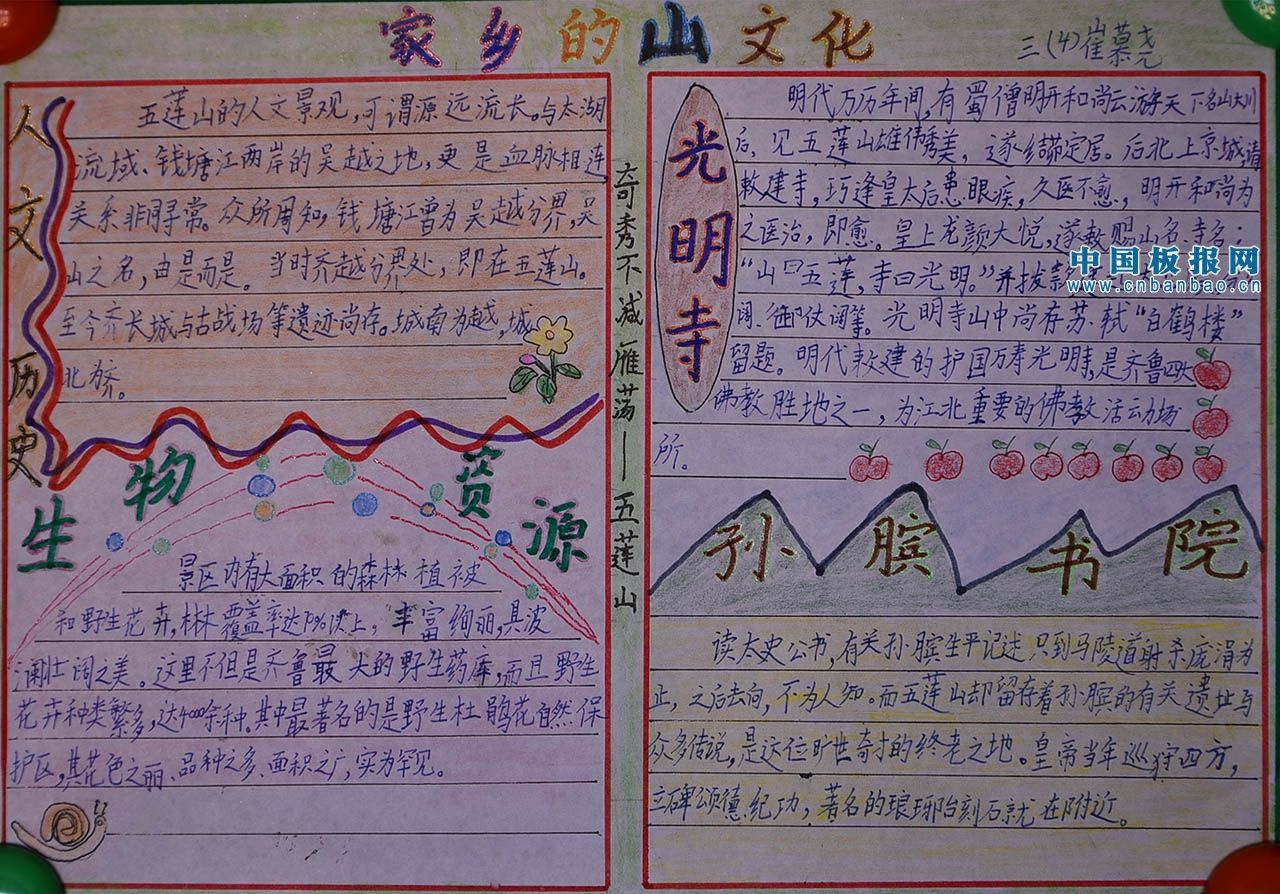 家乡的山文化
三(4)崔慕尧
人文历史
五莲山的人文景观,可谓源远流长。与太湖
流域、钱塘江两岸的吴越之地,更是血脉相连
关系非同寻常。众所周知,钱塘江曾为吴越分界,吴
山之名,由是而是。当时齐越分界处,即在五莲山。
至今齐长城与古战场等遗迹尚存。城南为越,城
北为齐。
生物资源
景区内有大面积的森林植被
和野生花卉,林覆盖率达以上,丰富绚丽,具波
澜壮阔之美。这里不但是齐鲁最大的野生药库,而且野生
花卉种类繁多,达4000余种。其中最著名的是野生杜鹃花自然保
护区,其花色之丽、品种之多、面积之广,实为罕见。
奇秀不减雁荡—五莲山
光明寺
明代万历年间,有蜀僧明开和尚云游天下名山大川
后,见五莲山雄伟秀美,遂结茆定居。后北上京城请
敕建寺,巧逢皇太后患眼疾,久医不愈,明开和尚为
之医治,即愈。皇上龙颜大悦,遂敕赐山名寺名:
“山曰五莲,寺曰光明。”并拨款建
阁、御仗阁等。光明寺山中尚存苏轼“白鹤楼”
留题。明代敕建的护国万寿光明寺,是齐鲁四大
佛教胜地之一,为江北重要的佛教活动场
所。
中国板报网
www.cnbanbao.cn
孙膑书院
读太史公书,有关孙膑生平记述只到马陵道射杀庞涓为
止,之后去向,不为人知。而五莲山却留存着孙膑的有关遗址与
众多传说,是这位旷世奇才的终老之地。皇帝当年巡狩四方,
立碑颂德纪功,著名的琅琊台刻石就在附近。